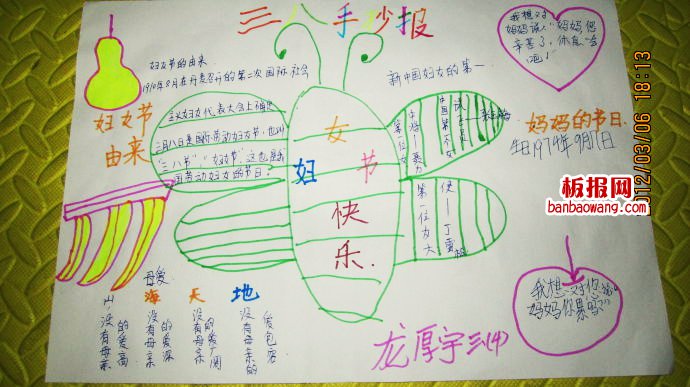 三八手抄报
妇女节的由来
1910年8月在丹麦召开的第二次国际社会
主义妇女代表大会上确定
三月八日是国际劳动妇女节,也叫
"三八节""妇女节"这也是我
国劳动妇女的节日?
妇女节
由来
新中国妇女的第一
中将—聂力
第一位女
我想对
妈妈说:"妈妈,您
辛苦了,休息一会
吧!"
妇女节
快
乐.
妈妈的节日.
生日1974年9月17日
第一位女大
使—丁雪松
板报网
banbaowang.com
2012/03/06 18:13
母爱
山没有母亲的爱高
海没有母亲的爱深
天没有母亲的爱阔
地没有母亲的爱包容
我想对你说
妈妈你累吗?
龙厚宇三(4)